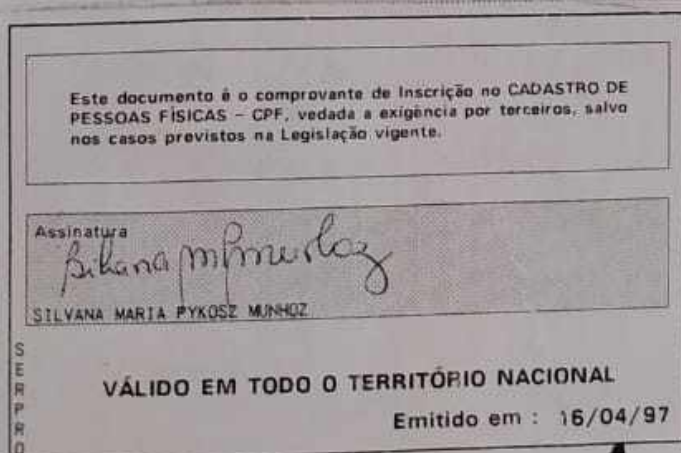 Este documento é o comprovante de Inscrição no CADASTRO DE
PESSOAS FÍSICAS – CPF, vedada a exigência por terceiros, salvo
nos casos previstos na Legislação vigente.
Assinatura
SILVANA MARIA PYKOSZ MUNHOZ
SERPRO
VÁLIDO EM TODO O TERRITÓRIO NACIONAL
Emitido em : 16/04/97